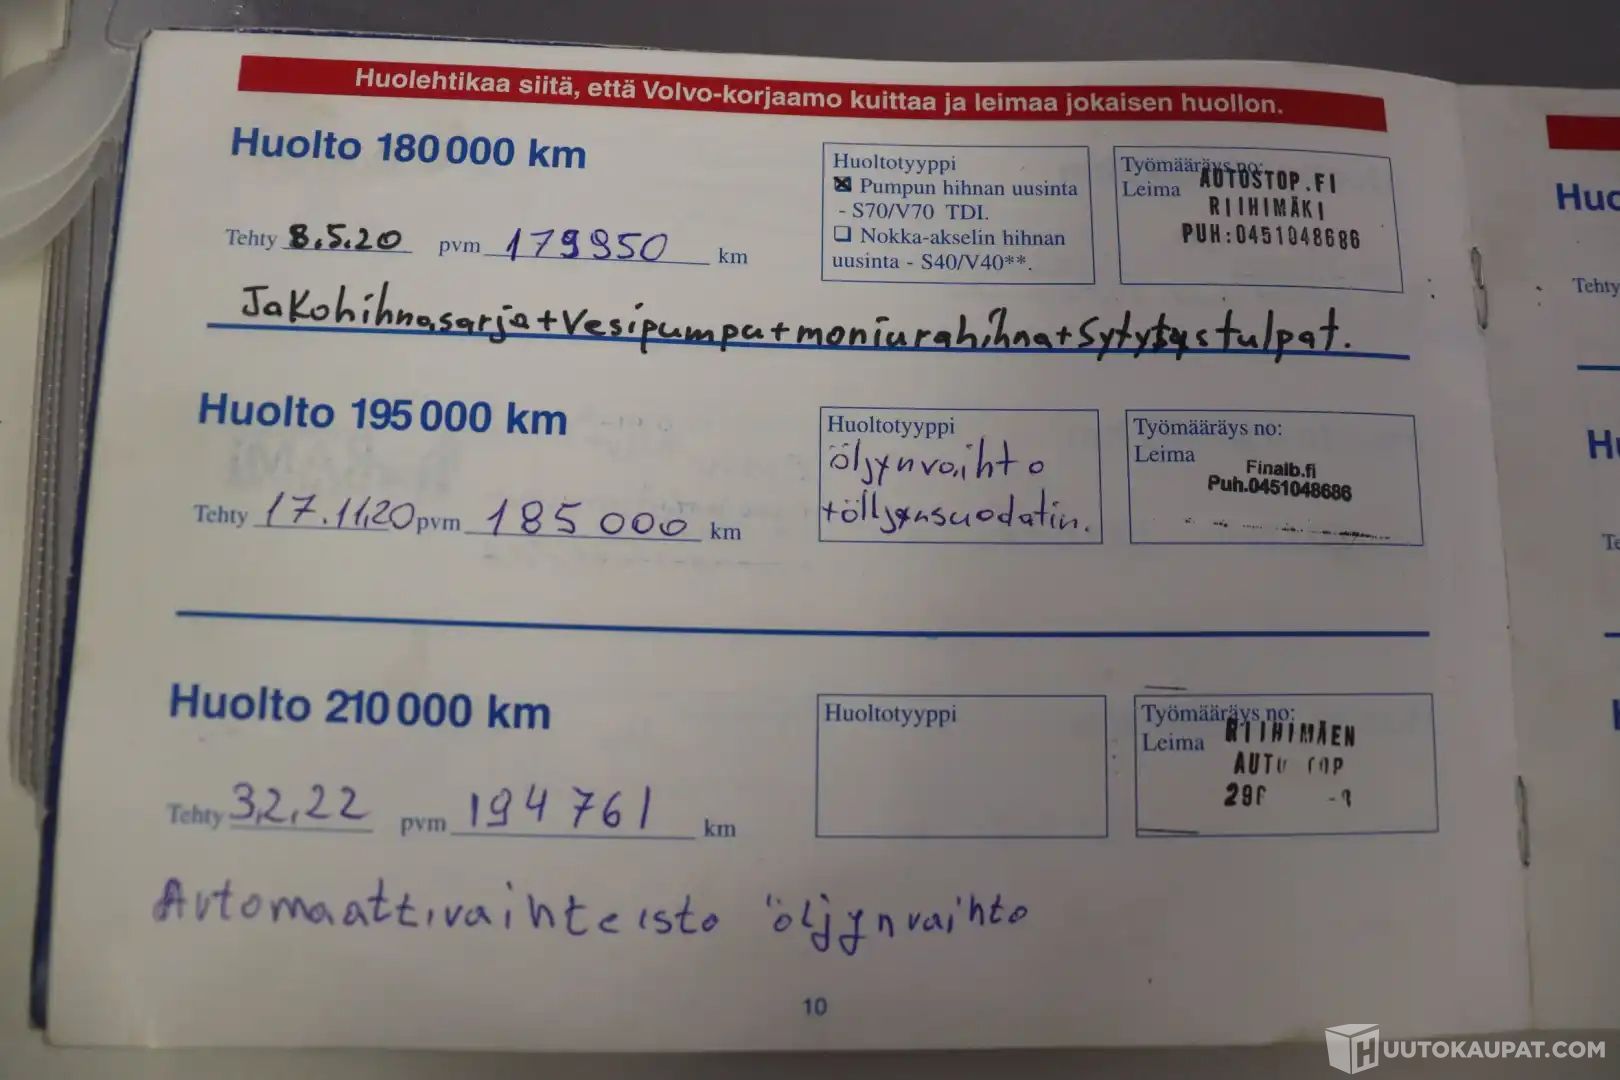 Huolehtikaa siitä, että Volvo-korjaamo kuittaa ja leimaa jokaisen huollon.
Huolto 180 000 km
Huoltotyyppi
☒ Pumpun hihnan uusinta
- S70/V70 TDI.
☐ Nokka-akselin hihnan
uusinta - S40/V40**.
Työmääräys no:
Leima
AUTOSTOP.FI
RIIHIMÄKI
PUH:0451048686
Tehty 8.5.20 pvm 179950 km
Jakohihnasarja+Vesipumpu+moniurahihna+Sytytystulpat.
Huolto 195 000 km
Huoltotyyppi
öljynvaihto
+ölljynsuodatin.
Työmääräys no:
Leima
Finalb.fi
Puh.0451048686
Tehty 17.11.20 pvm 185 000 km
Huolto 210 000 km
Huoltotyyppi
Työmääräys no:
Leima
RIIHIMÄEN
Tehty 3.2.22 pvm 194 761 km
Automaattivaihteisto öljynvaihto
10
Tehty
HUUTOKAUPAT.COM